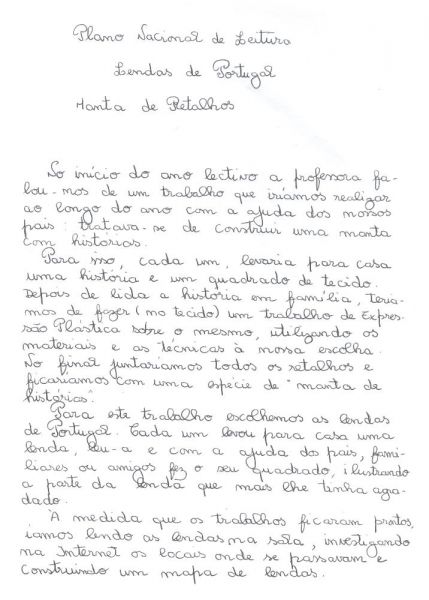 Plano Nacional de Leitura
Lendas de Portugal
Manta de Retalhos
No início do ano lectivo a professora fa-
lou-nos de um trabalho que iríamos realizar
ao longo do ano com a ajuda dos nossos
pais: tratava-se de construir uma manta
com histórias.
Para isso, cada um, levaria para casa
uma história e um quadrado de tecido.
Depois de lida a história em família, tería-
mos de fazer (no tecido) um trabalho de Expres-
são Plástica sobre o mesmo, utilizando os
materiais e as técnicas à nossa escolha.
No final juntaríamos todos os retalhos e
ficaríamos com uma espécie de "manta de
histórias".
Para este trabalho escolhemos as lendas
de Portugal. Cada um levou para casa uma
lenda, leu-a e com a ajuda dos pais, fami-
liares ou amigos fez o seu quadrado, ilustrando
a parte da lenda que mais lhe tinha agra-
dado.
À medida que os trabalhos ficaram prontos,
íamos lendo as lendas na sala, investigando
na Internet os locais onde se passavam e
construindo um mapa de lendas.